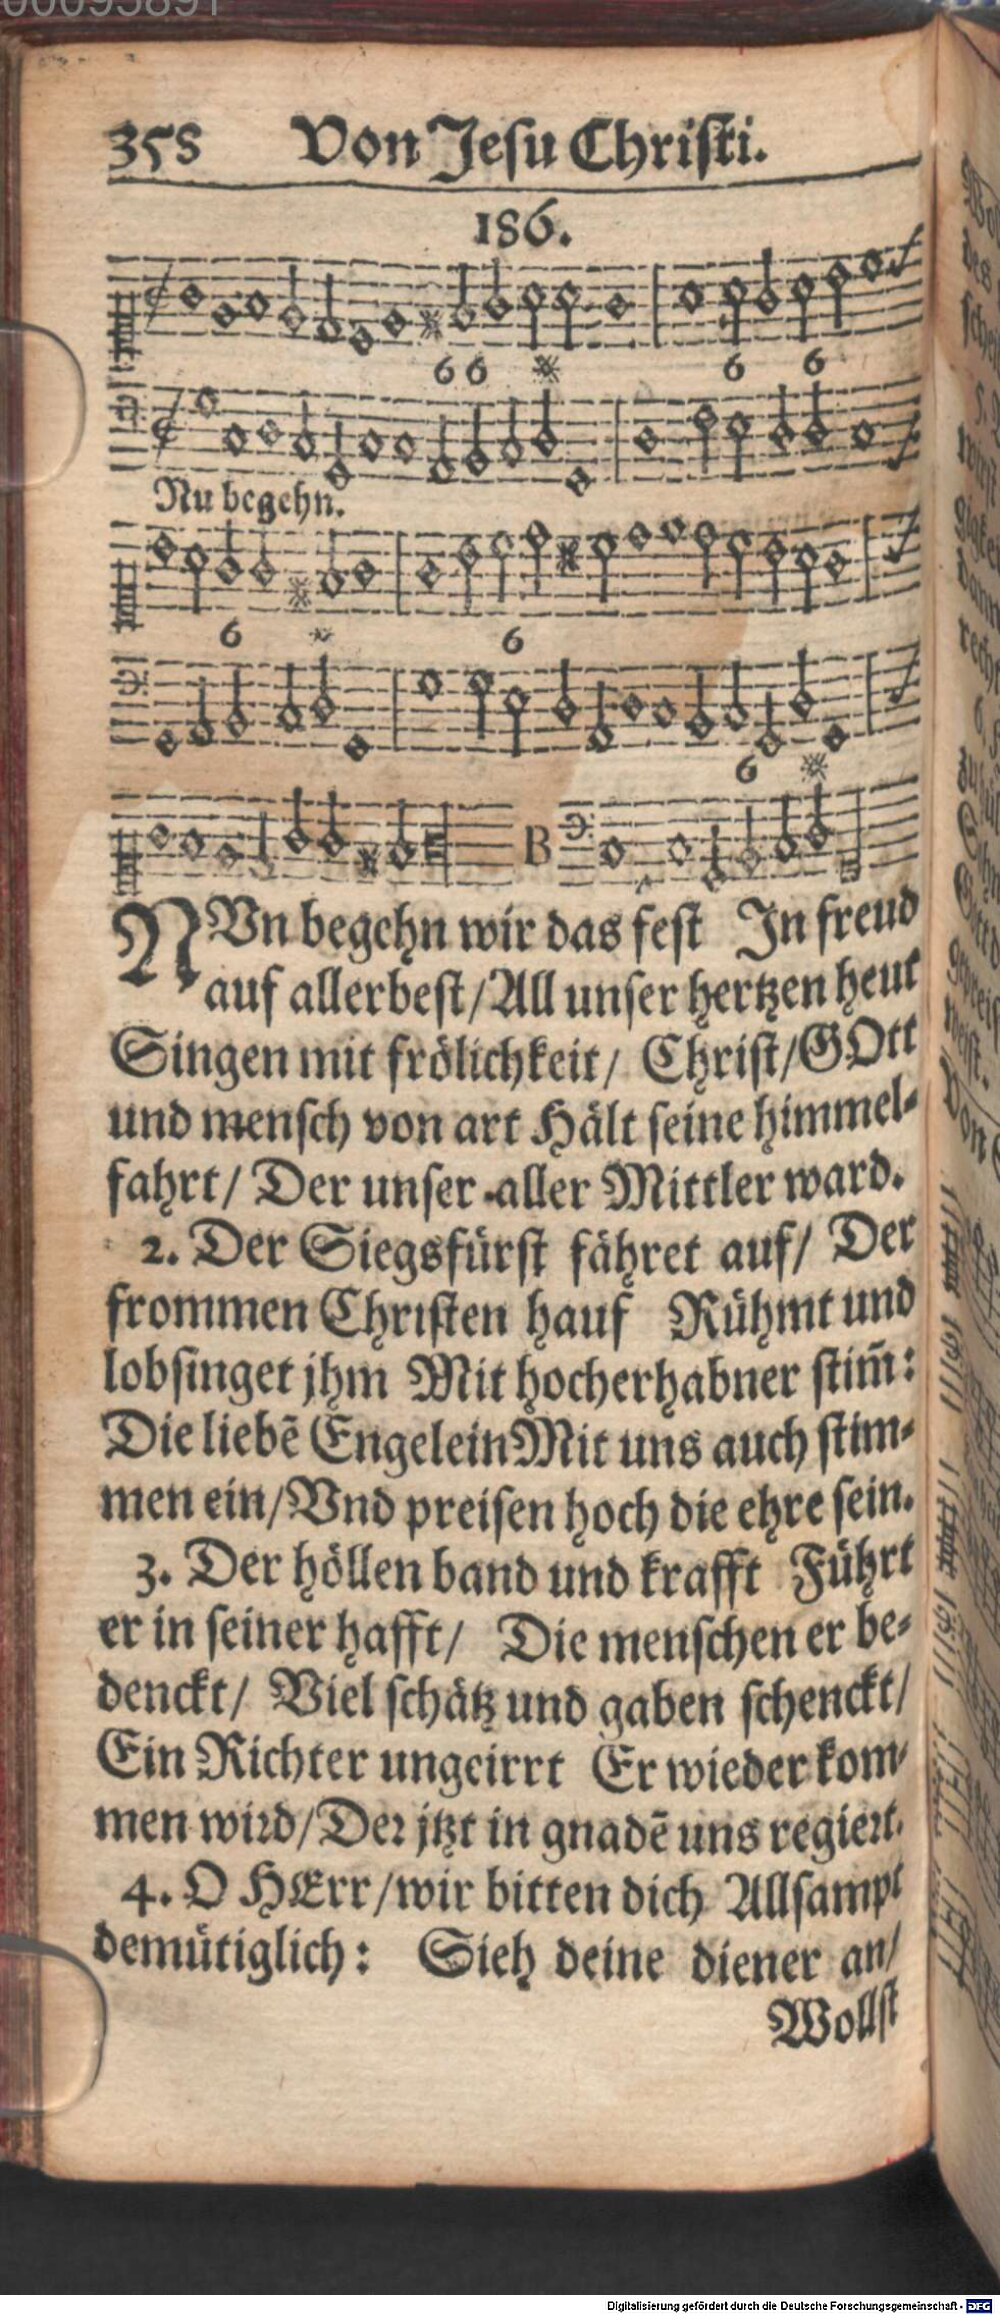 00095891
358 Von Jesu Christi.
186.
6 6 6 6
Nu begehn.
6 6
6
B
NVn begehn wir das fest In freud
auf allerbest/All unser hertzen heut
Singen mit frölichkeit/ Christ/GOtt
und mensch von art Hält seine himmel-
fahrt/ Der unser aller Mittler ward.
2. Der Siegsfürst fähret auf/ Der
frommen Christen hauf Rühmt und
lobsinget jhm Mit hocherhabner stim̃:
Die liebẽ Engelein Mit uns auch stim-
men ein/Vnd preisen hoch die ehre sein.
3. Der höllen band und krafft Führt
er in seiner hafft/ Die menschen er be-
denckt/ Viel schätz und gaben schenckt/
Ein Richter ungeirrt Er wieder kom-
men wird/Der jtzt in gnadẽ uns regiert.
4. O HErr/wir bitten dich Allsampt
demütiglich: Sieh deine diener an/
Wollst
Digitalisierung gefördert durch die Deutsche Forschungsgemeinschaft - DFG